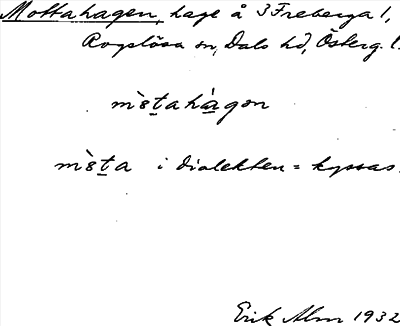 Mottahagen, hage å 3 Freberga 1,
Rogslösa sn, Dals hd, Österg. l.
mòtahàgən
mòta i dialekten = kyssas.
Erik Alm 1932